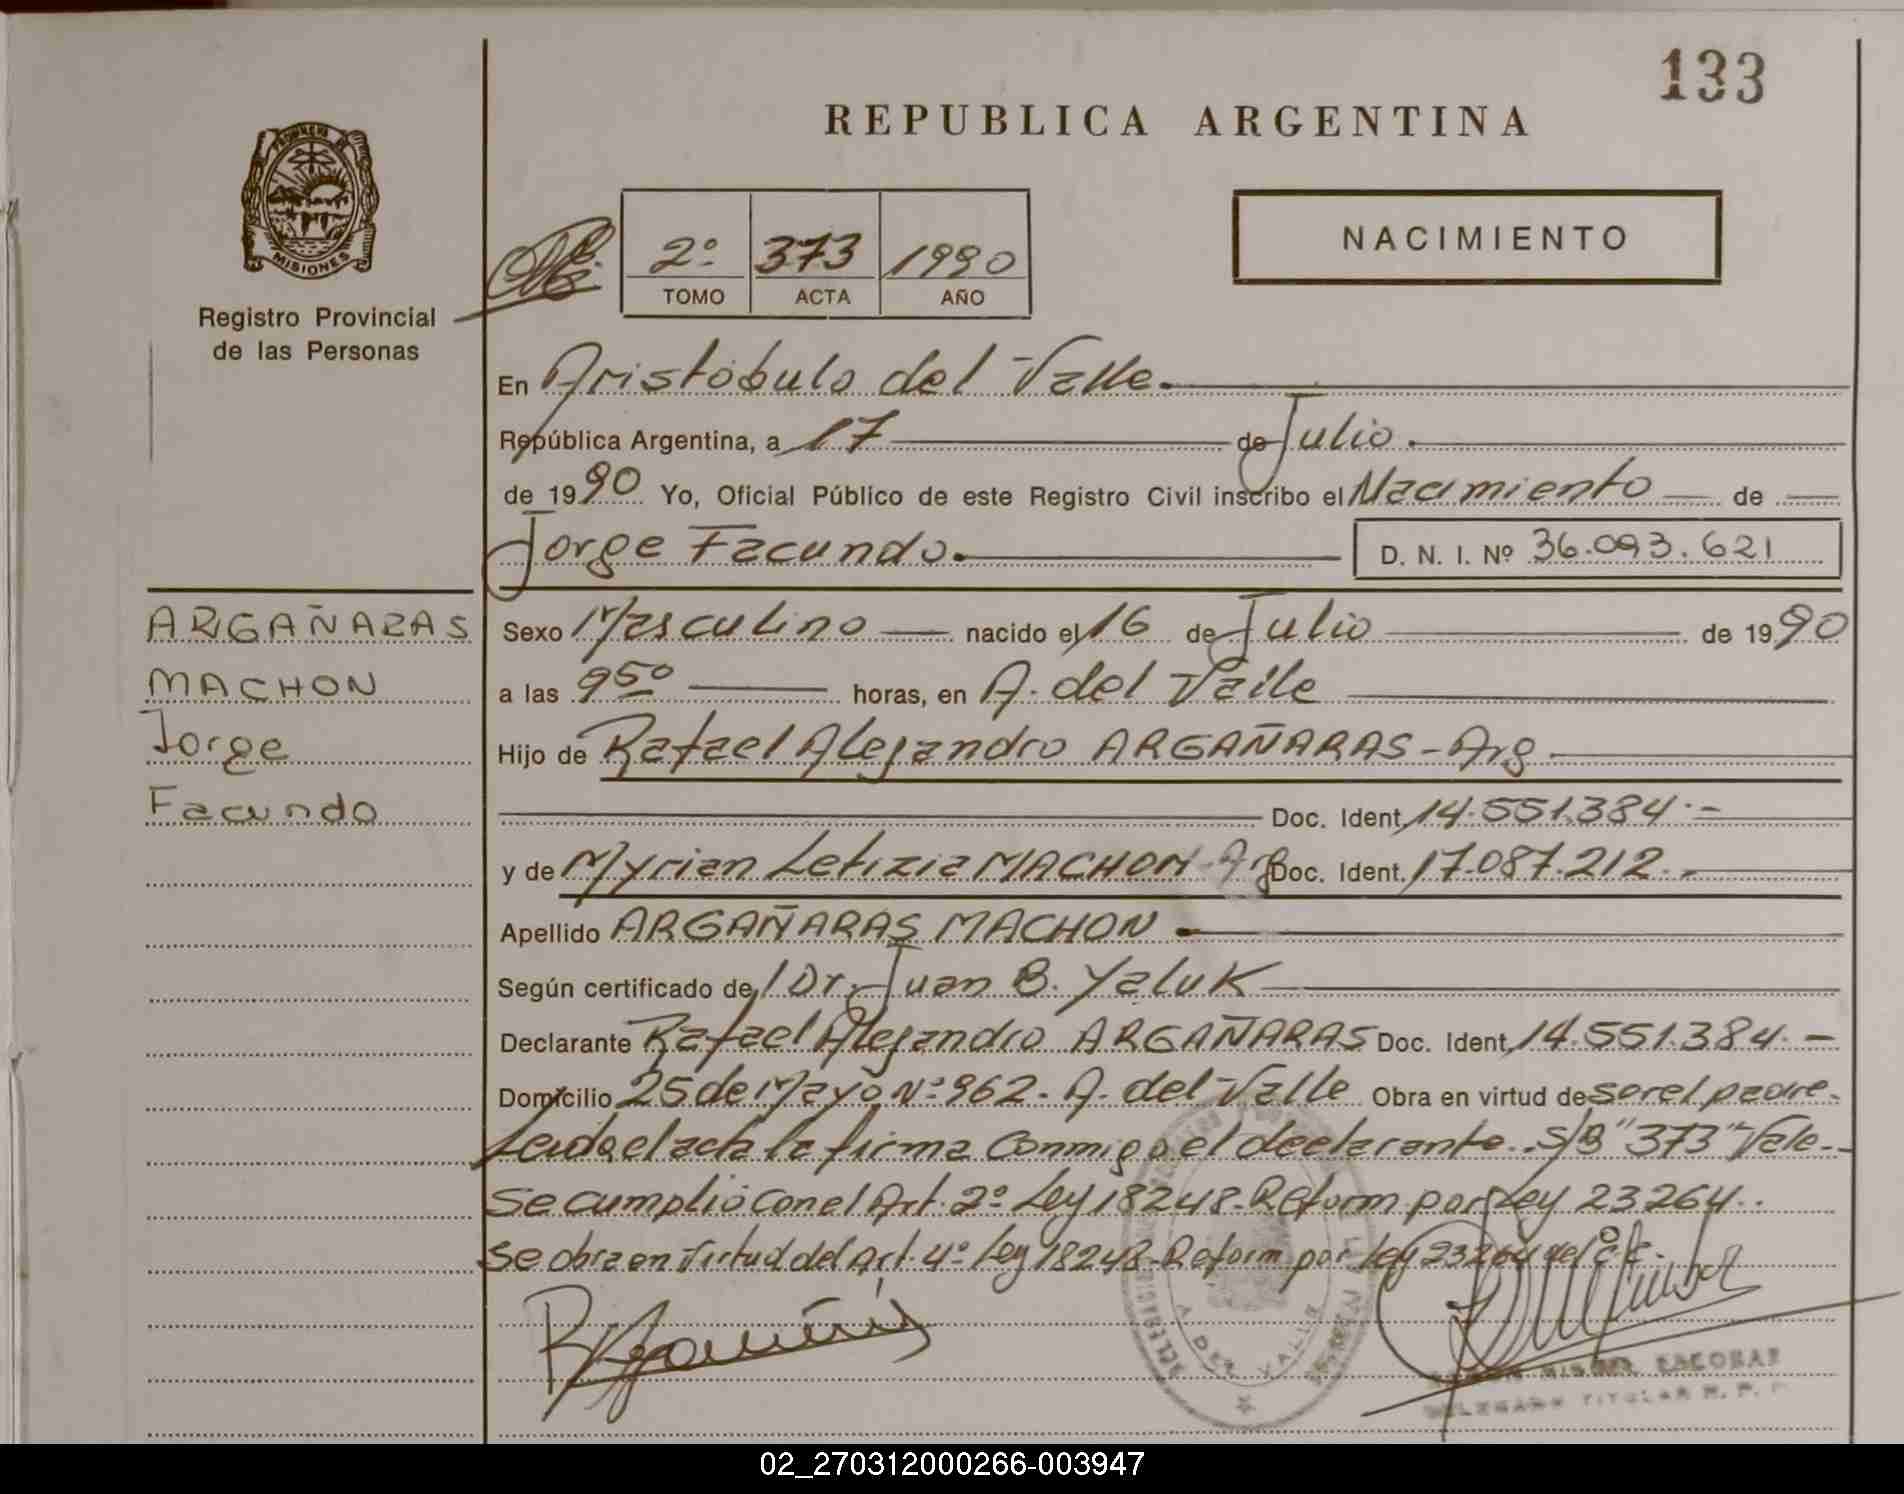 133
REPUBLICA ARGENTINA
PROVINCIA
MISIONES
Registro Provincial
de las Personas
2º 373 1990
TOMO ACTA AÑO
NACIMIENTO
En Aristóbulo del Valle.
República Argentina, a 17 de Julio.
de 1990 Yo, Oficial Público de este Registro Civil inscribo el Nacimiento de
Jorge Facundo. D. N. I. Nº 36.093.621
ARGAÑARAS
MACHON
Jorge
Facundo
Sexo Masculino nacido el 16 de Julio de 1990
a las 9⁵⁰ horas, en A. del Valle
Hijo de Rafael Alejandro ARGAÑARAS - Arg
Doc. Ident. 14.551.384.-
y de Myrian Letizia MACHON - Arg Doc. Ident. 17.087.212.-
Apellido ARGAÑARAS MACHON
Según certificado de l Dr. Juan B. Yaluk
Declarante Rafael Alejandro ARGAÑARAS Doc. Ident. 14.551.384.-
Domicilio 25 de Mayo Nº 962 - A. del Valle Obra en virtud de ser el padre.
Leida el acta la firma conmigo el declarante. S/B "373" Vale.-
Se cumplió con el Art. 2º Ley 18248 - Reform por Ley 23264..
Se obra en virtud del Art. 4º Ley 18248 - Reform por Ley 23264 del C.C.-
A. DEL VALLE
ESCOBAR
DELEGADO TITULAR R. P. P.
02_270312000266-003947